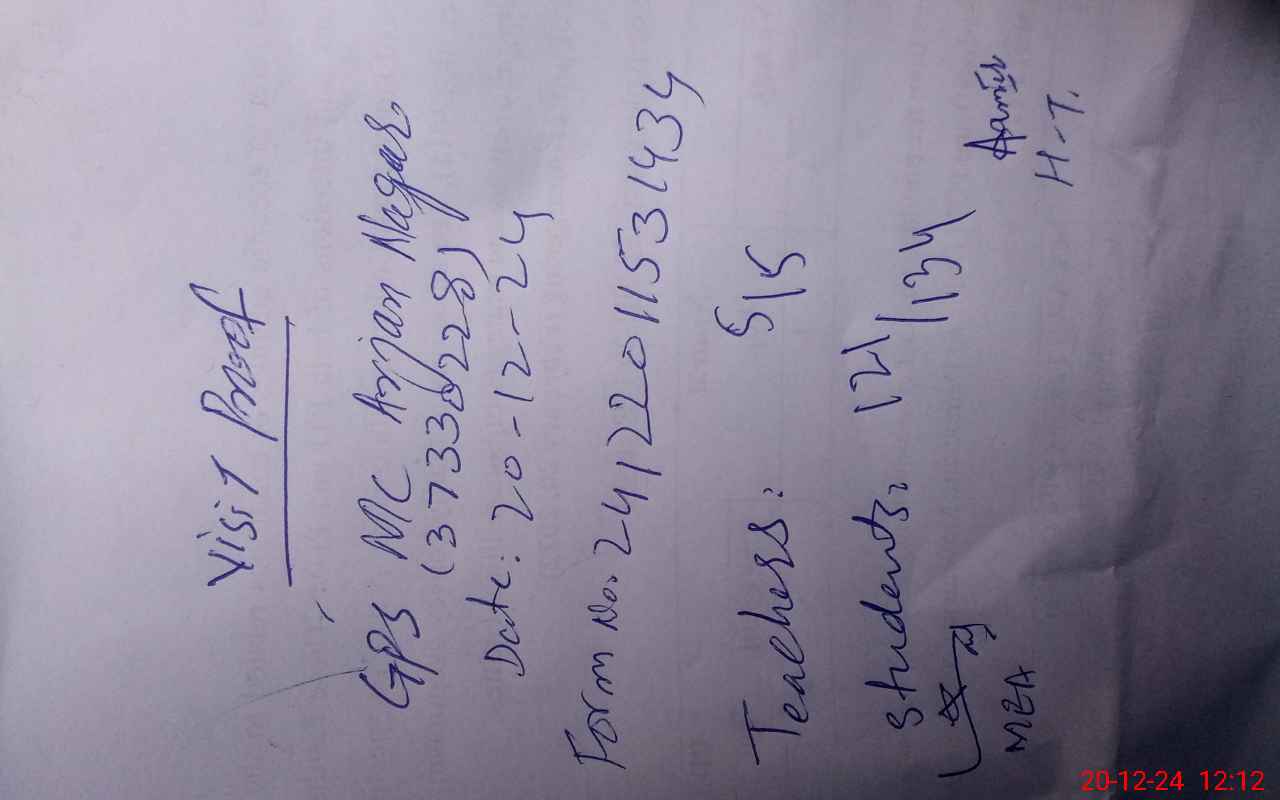 Visit Proof
GPS MC Anjan Nagar
(37330228)
Date: 20-12-24
Form No. 24122011531434
Teachers: 5/5
Students: 121/134
MEA
H-T.
20-12-24 12:12